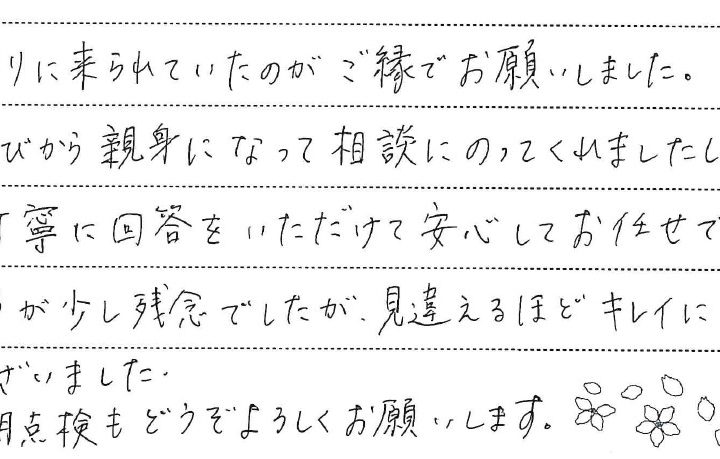 りに来られていたのがご縁でお願いしました。
びから親身になって相談にのってくれましたし
寧に回答をいただけて安心してお任せで
が少し残念でしたが、見違えるほどキレイに
ざいました.
点検もどうぞよろしくお願いします。